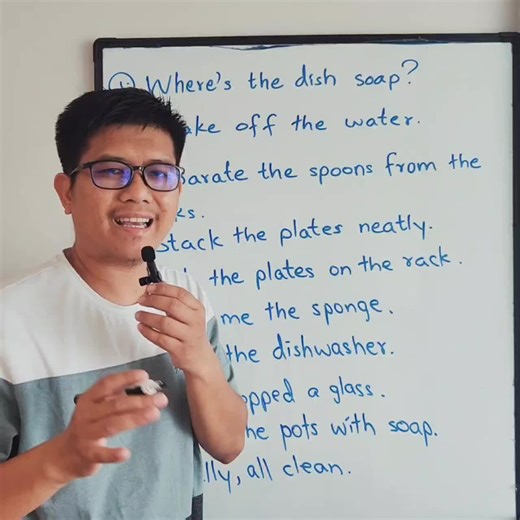 Where's the dish soap?
ake off the water.
arate the spoons from the
ks.
Stack the plates neatly.
the plates on the rack.
me the sponge.
the dishwasher.
opped a glass.
he pots with soap.
lly, all clean.